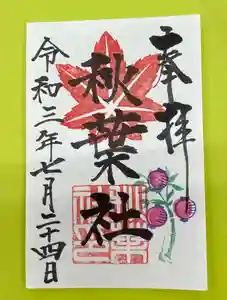 奉拝
秋葉社
令和三年七月二十四日